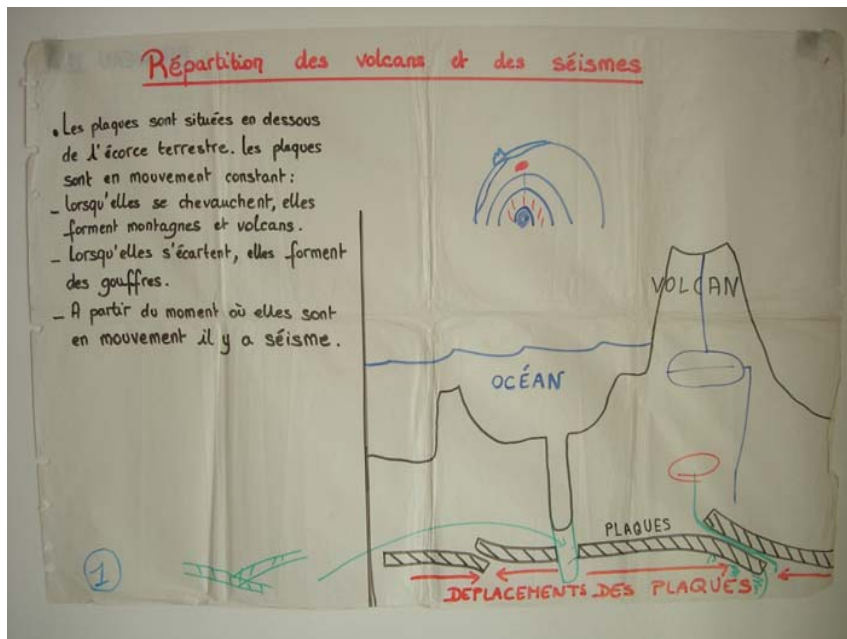 Répartition des volcans et des séismes
• Les plaques sont situées en dessous
de l'écorce terrestre. Les plaques
sont en mouvement constant :
– Lorsqu'elles se chevauchent, elles
forment montagnes et volcans.
– Lorsqu'elles s'écartent, elles forment
des gouffres.
– A partir du moment où elles sont
en mouvement il y a séisme.
VOLCAN
OCÉAN
PLAQUES
DEPLACEMENTS DES PLAQUES
1